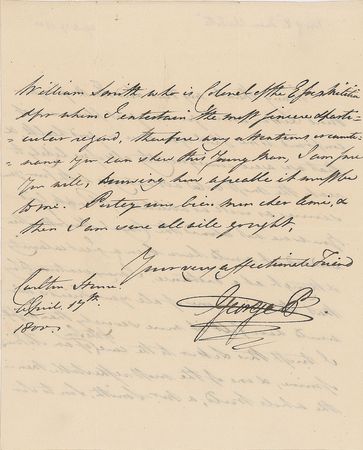 William Smith who is Colonel of the Essex Militia
& for whom I entertain the most sincere & parti-
-cular regard, therefore any attentions or counte-
-nance you can shew this Young Man, I am sure
You will, knowing how agreable it must be
to me. Portez vous bien mon cher &
then I am sure all will go right,
Your very affectionate Friend
George P.
Carlton House
April 17th.
1800.